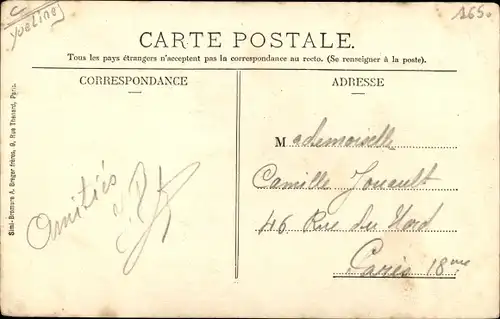 C
Yveline
265.
CARTE POSTALE.
Tous les pays étrangers n'acceptent pas la correspondance au recto. (Se renseigner à la poste).
CORRESPONDANCE
ADRESSE
Simi-Bromure A. Breger frères, 9, Rue Thénard, Paris.
Amitiés
Mademoiselle
Camille Jouault
46 Rue du Nord
Paris 18me